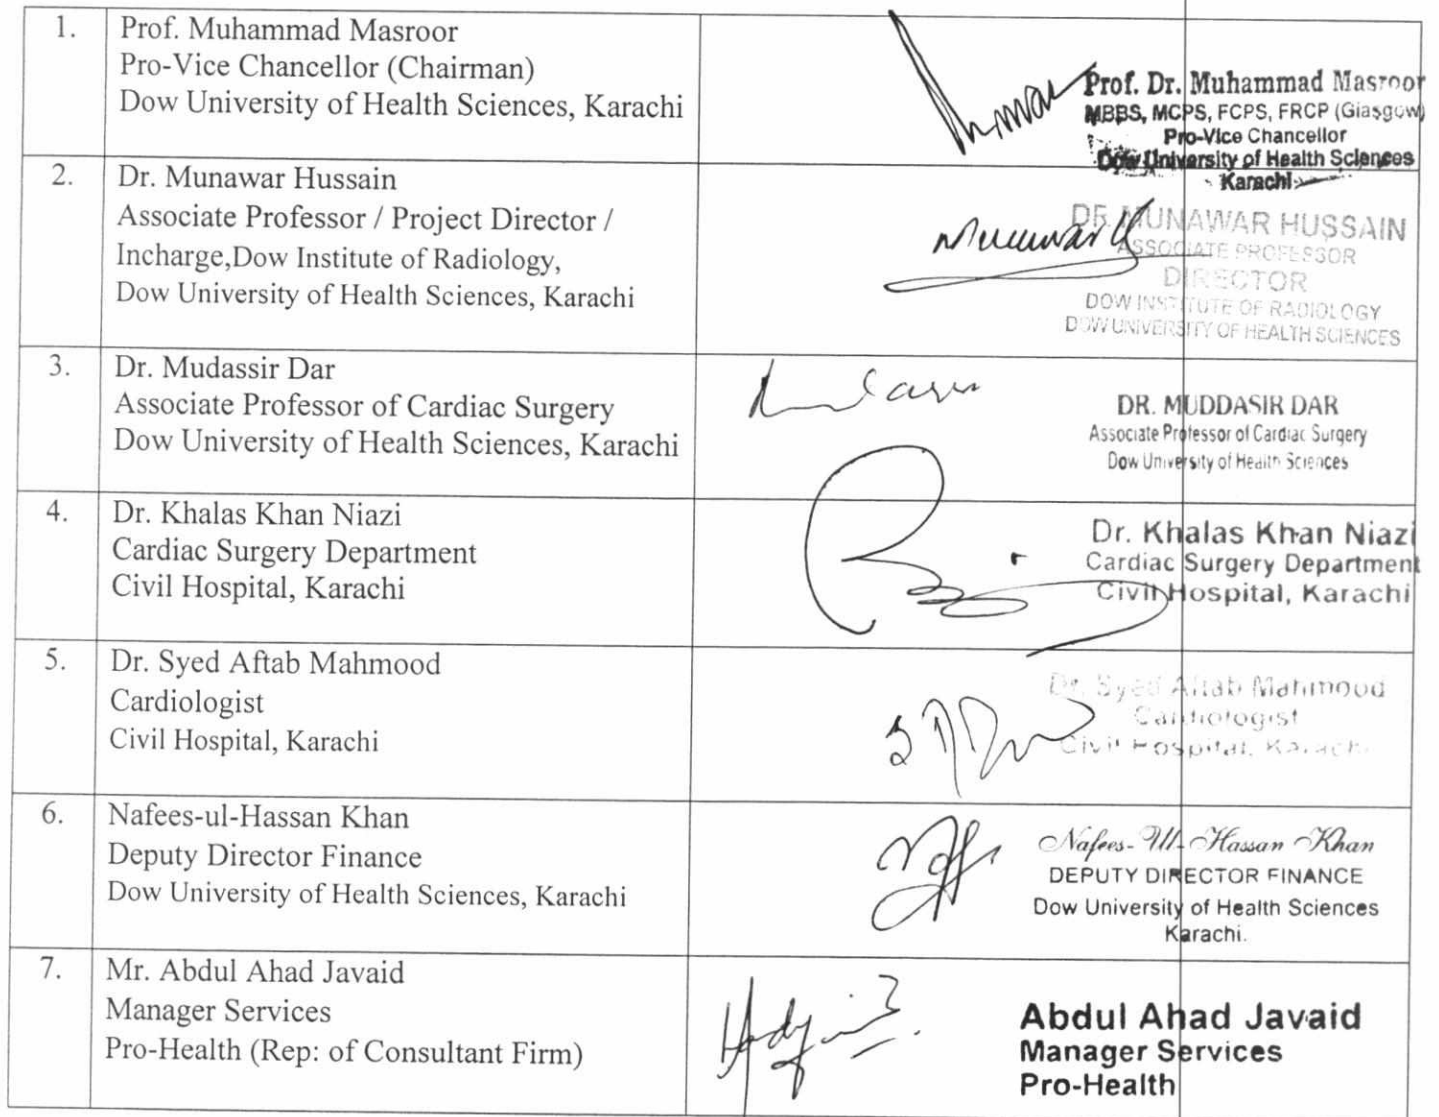 1.
Prof. Muhammad Masroor
Pro-Vice Chancellor (Chairman)
Dow University of Health Sciences, Karachi
Prof. Dr. Muhammad Masroor
MBBS, MCPS, FCPS, FRCP (Glasgow)
Pro-Vice Chancellor
Dow University of Health Sciences
Karachi
2.
Dr. Munawar Hussain
Associate Professor / Project Director /
Incharge,Dow Institute of Radiology,
Dow University of Health Sciences, Karachi
DR. MUNAWAR HUSSAIN
ASSOCIATE PROFESSOR
DIRECTOR
DOW INSTITUTE OF RADIOLOGY
DOW UNIVERSITY OF HEALTH SCIENCES
3.
Dr. Mudassir Dar
Associate Professor of Cardiac Surgery
Dow University of Health Sciences, Karachi
DR. MUDDASIR DAR
Associate Professor of Cardiac Surgery
Dow University of Health Sciences
4.
Dr. Khalas Khan Niazi
Cardiac Surgery Department
Civil Hospital, Karachi
Dr. Khalas Khan Niazi
Cardiac Surgery Department
Civil Hospital, Karachi
5.
Dr. Syed Aftab Mahmood
Cardiologist
Civil Hospital, Karachi
Dr. Syed Aftab Mahmood
Cardiologist
Civil Hospital, Karachi
6.
Nafees-ul-Hassan Khan
Deputy Director Finance
Dow University of Health Sciences, Karachi
Nafees-Ul-Hassan Khan
DEPUTY DIRECTOR FINANCE
Dow University of Health Sciences
Karachi.
7.
Mr. Abdul Ahad Javaid
Manager Services
Pro-Health (Rep: of Consultant Firm)
Abdul Ahad Javaid
Manager Services
Pro-Health